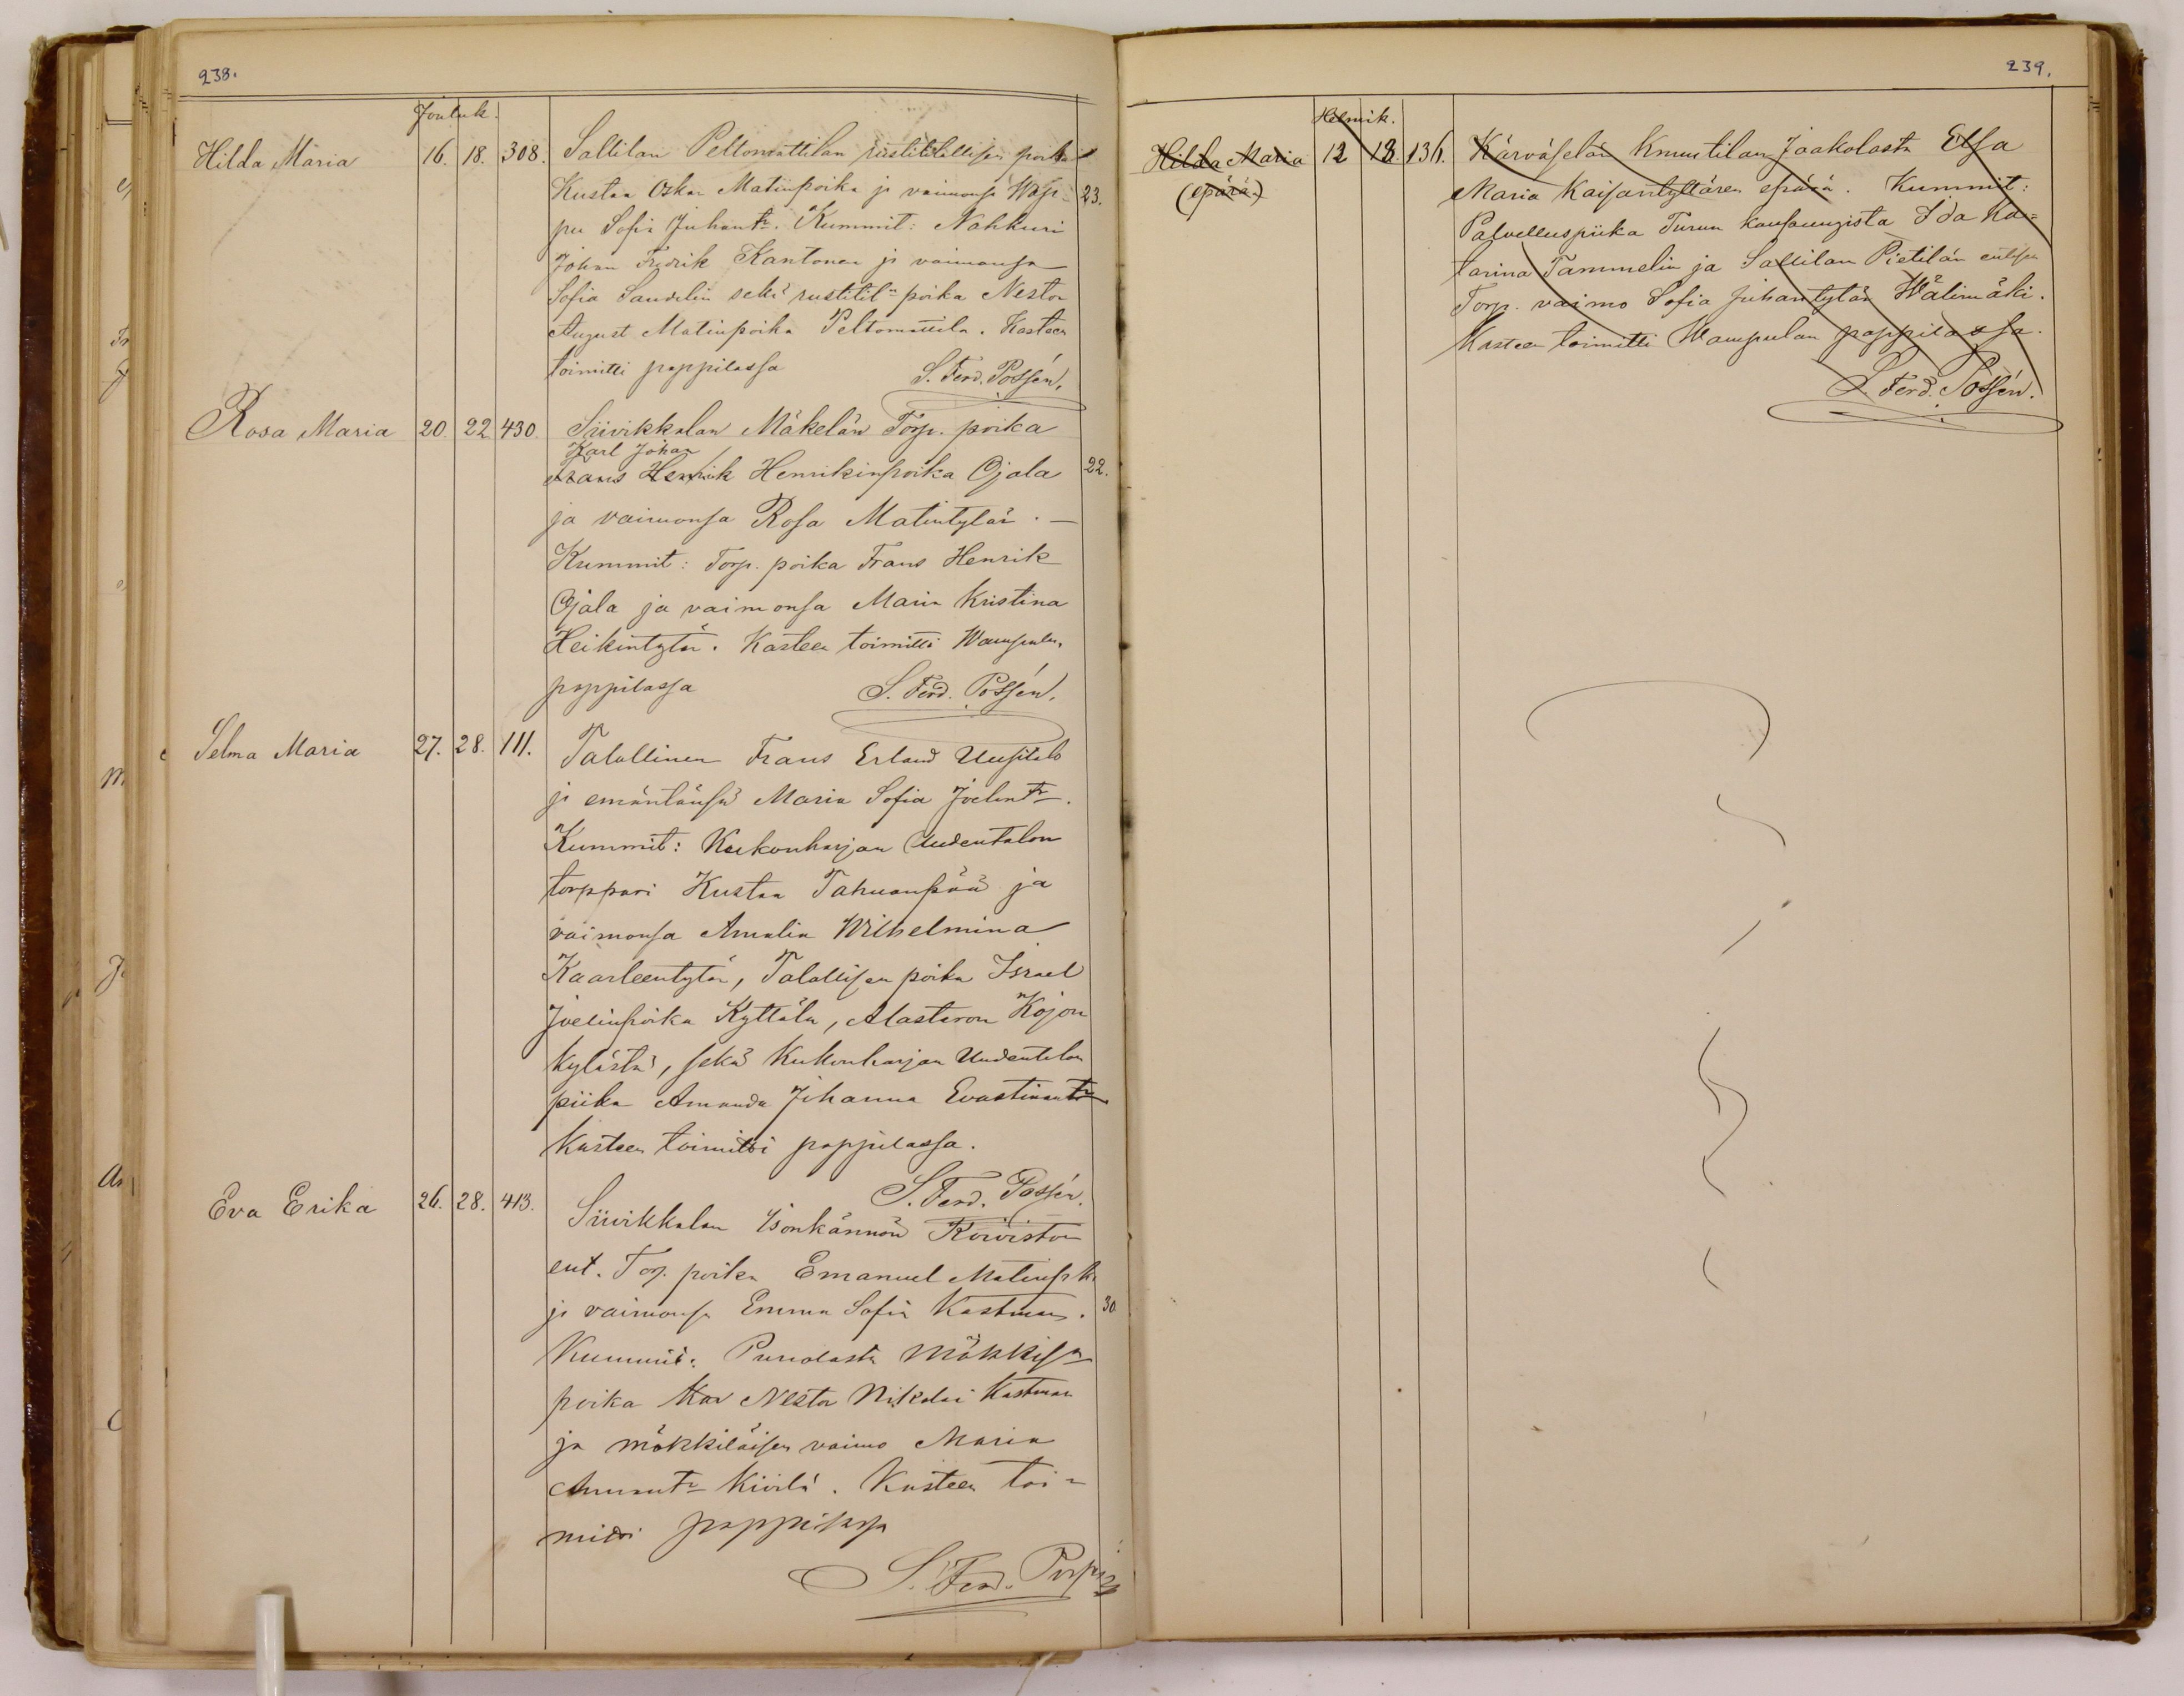 238.
Jouluk.
Hilda Maria 16. 18. 308. Sallilan Peltomattilan rustitilallisen poika
Kustaa Oskar Matinpoika ja vaimonsa Wap- 23.
pu Sofia Juhant:r. Kummit: Nahkuri
Johan Fredrik Kantonen ja vaimonsa
Sofia Sandelin sekä rustitil:n poika Nestor
August Matinpoika Peltomattila. Kasteen
toimitti pappilassa S. Ferd. Possén.
Rosa Maria 20. 22. 430. Siivikkalan Mäkelän Torp. poika
Karl Johan
Frans Henrik Henrikinpoika Ojala 22.
ja vaimonsa Rosa Matintytär. —
Kummit: Torp. poika Frans Henrik
Ojala ja vaimonsa Maria Kristina
Heikintytär. Kasteen toimitti Wampulan
pappilassa S. Ferd. Possén.
Selma Maria 27. 28. 111. Talollinen Frans Erland Uusitalo
ja emäntänsä Maria Sofia Joelint:r.
Kummit: Kukonharjan Uudentalon
torppari Kustaa Tahvanpää ja
vaimonsa Amalia Wilhelmina
Kaarleentytär, Talollisen poika Israel
Joelinpoika Kyttälä, Alastaron Kojon
kylästä, sekä Kukonharjan Uudentalon
piika Amanda Johanna Evastinant:r
Kasteen toimitti pappilassa.
S. Ferd. Possén.
Eva Erika 26. 28. 413. Siivikkalan Isonkännön Koiviston
ent. Torp. poika Emanuel Matinp:ka
ja vaimonsa Emma Sofia Kastman. 30.
Kummit: Punolasta Mökkis:n
poika Nestor Nikolai Kastman
ja mökkiläisen vaimo Maria
Kivilä. Kasteen toi-
mitti pappilassa
S. Ferd. Possén
239.
Helmik.
Hilda Maria 12 18. 136. Kärväselän Knuutilan Jaakolasta Elsa
(epärä) Maria Kaisantyttären epärä. Kummit:
Palvelluspiika Turun kaupungista Ida Ka-
tarina Tammelin ja Sallilan Pietilän entisen
Torp. vaimo Sofia Juhantytär Wälimäki.
Kasteen toimitti Wampulan pappilassa.
S. Ferd. Possén.